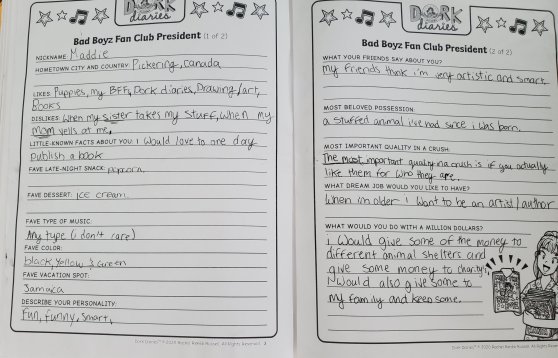 DORK
diaries
Bad Boyz Fan Club President (1 of 2)
NICKNAME: Maddie
HOMETOWN CITY AND COUNTRY: Pickering, Canada
LIKES: Puppies, my BFF, Dork diaries, Drawing/art,
Books
DISLIKES: When my sister takes my stuff, When my
mom yells at me.
LITTLE-KNOWN FACTS ABOUT YOU: I Would love to one day
publish a book
FAVE LATE-NIGHT SNACK: popcorn.
FAVE DESSERT: ICE cream.
FAVE TYPE OF MUSIC:
Any type (i don't care)
FAVE COLOR:
black, Yellow & Green
FAVE VACATION SPOT:
Jamaica
DESCRIBE YOUR PERSONALITY:
Fun, funny, Smart,
DORK
diaries
Bad Boyz Fan Club President (2 of 2)
WHAT YOUR FRIENDS SAY ABOUT YOU?
my friends think i'm very artistic and smart
MOST BELOVED POSSESSION:
a stuffed animal i've had since i was born.
MOST IMPORTANT QUALITY IN A CRUSH:
The most important quality in a crush is if you actually
like them for who they are.
WHAT DREAM JOB WOULD YOU LIKE TO HAVE?
When im older I want to be an artist/author
WHAT WOULD YOU DO WITH A MILLION DOLLARS?
i Would give some of the money to
different animal shelters and
give some money to charity.
I Would also give some to
my family and keep some.